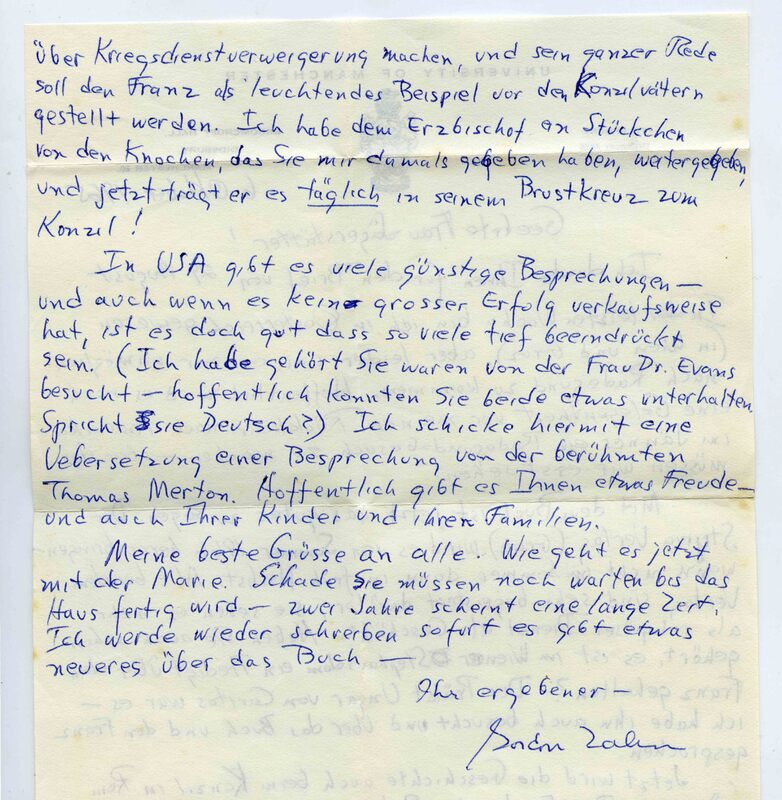 über Kriegsdienstverweigerung machen, und sein ganzer Rede
soll den Franz als leuchtendes Beispiel vor den Konzilvätern
gestellt werden. Ich habe dem Erzbischof en Stückchen
von den Knochen, das Sie mir damals gegeben haben, weitergegeben,
und jetzt trägt er es täglich in seinem Brustkreuz zum
Konzil!
In USA gibt es viele günstige Besprechungen —
und auch wenn es kein grosser Erfolg verkaufsweise
hat, ist es doch gut dass so viele tief beeindrückt
sein. (Ich habe gehört Sie waren von der Frau Dr. Evans
besucht — hoffentlich konnten Sie beide etwas unterhalten.
Spricht sie Deutsch?) Ich schicke hiermit eine
Uebersetzung einer Besprechung von der berühmten
Thomas Merton. Hoffentlich gibt es Ihnen etwas Freude —
und auch Ihrer Kinder und ihren Familien.
Meine beste Grüsse an alle. Wie geht es jetzt
mit der Marie. Schade Sie müssen noch warten bis das
Haus fertig wird — zwei Jahre scheint eine lange Zeit.
Ich werde wieder schreiben sofort es gibt etwas
neueres über das Buch —
Ihr ergebener —
Gordon Zahn
UNIVERSITY OF MANCHESTER